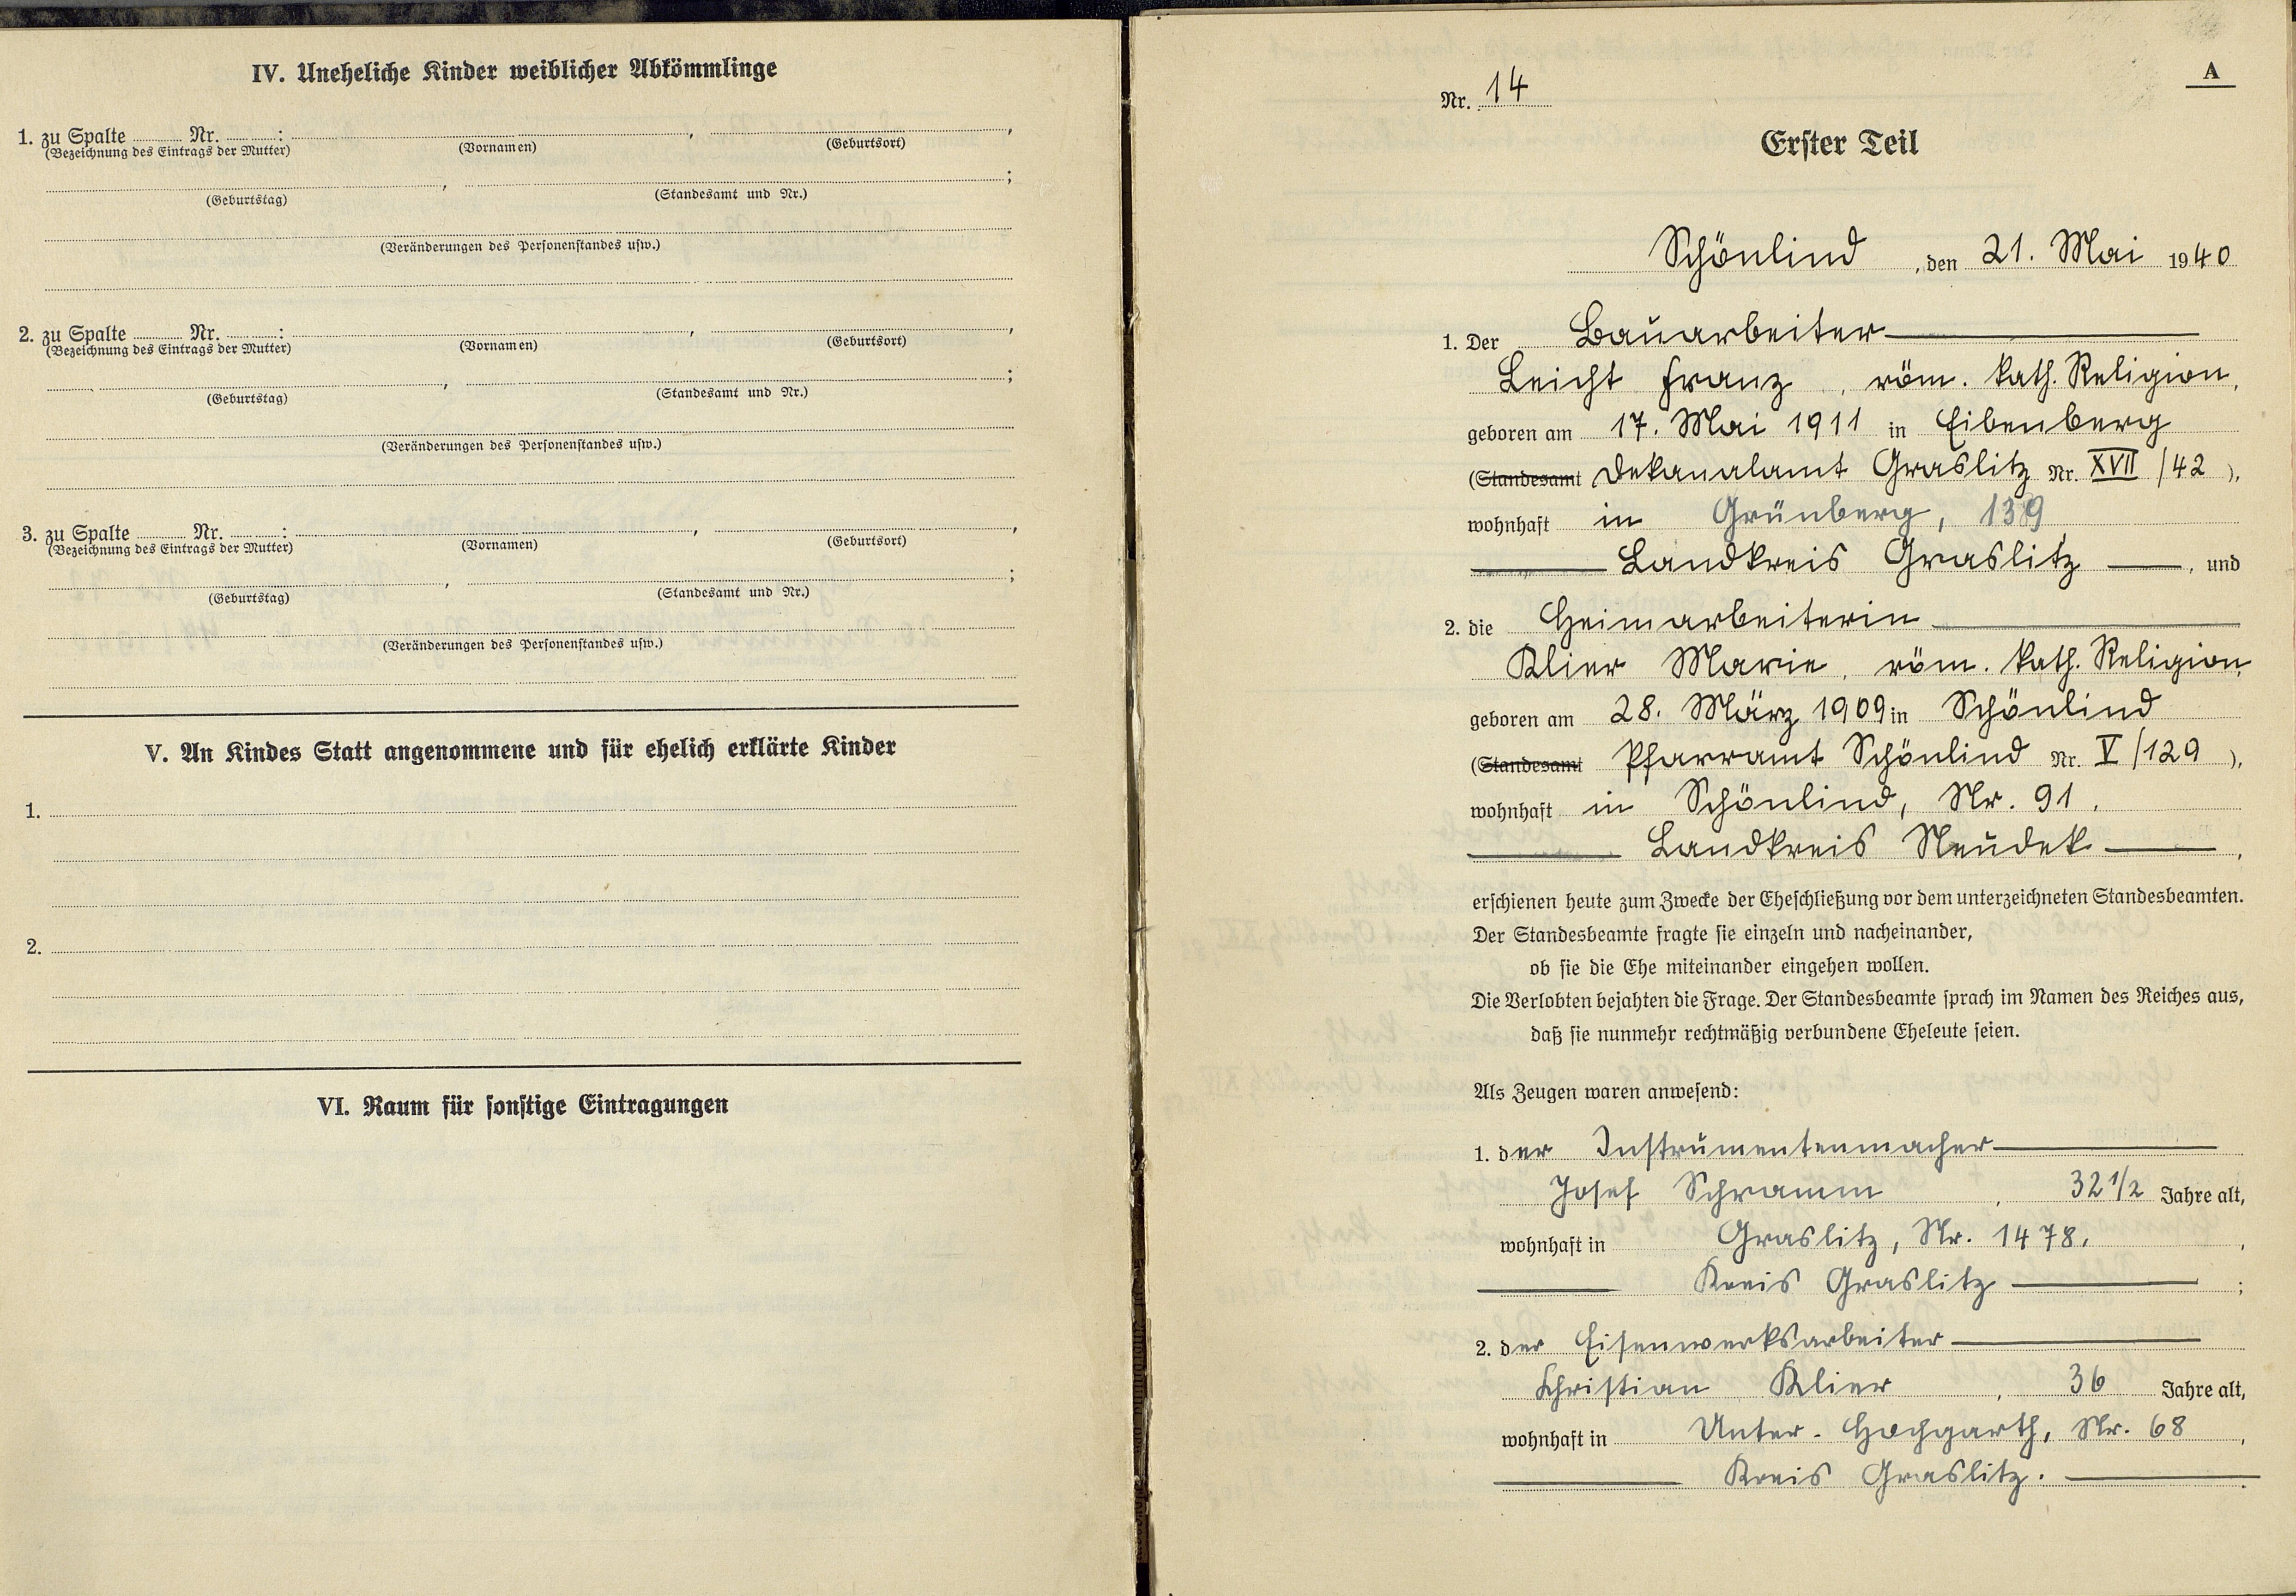 IV. Uneheliche Kinder weiblicher Abkömmlinge
1. zu Spalte ........ Nr. ........:
(Bezeichnung des Eintrags der Mutter) (Vornamen) (Geburtsort)
(Geburtstag) (Standesamt und Nr.)
(Veränderungen des Personenstandes usw.)
2. zu Spalte ........ Nr. ........:
(Bezeichnung des Eintrags der Mutter) (Vornamen) (Geburtsort)
(Geburtstag) (Standesamt und Nr.)
(Veränderungen des Personenstandes usw.)
3. zu Spalte ........ Nr. ........:
(Bezeichnung des Eintrags der Mutter) (Vornamen) (Geburtsort)
(Geburtstag) (Standesamt und Nr.)
(Veränderungen des Personenstandes usw.)
V. An Kindes Statt angenommene und für ehelich erklärte Kinder
1.
2.
VI. Raum für sonstige Eintragungen
A
Nr. 14
Erster Teil
Schönlind, den 21. Mai 1940
1. Der Bauarbeiter
Leicht Franz, röm. kath. Religion,
geboren am 17. Mai 1911 in Eibenberg
(Standesamt Dekanalamt Graslitz Nr. XVII/42),
wohnhaft in Grünberg, 139
Landkreis Graslitz, und
2. die Heimarbeiterin
Klier Marie, röm. kath. Religion,
geboren am 28. März 1909 in Schönlind
(Standesamt Pfarramt Schönlind Nr. V/129),
wohnhaft in Schönlind, Nr. 91.
Landkreis Neudek,
erschienen heute zum Zwecke der Eheschließung vor dem unterzeichneten Standesbeamten.
Der Standesbeamte fragte sie einzeln und nacheinander,
ob sie die Ehe miteinander eingehen wollen.
Die Verlobten bejahten die Frage. Der Standesbeamte sprach im Namen des Reiches aus,
daß sie nunmehr rechtmäßig verbundene Eheleute seien.
Als Zeugen waren anwesend:
1. der Instrumentenmacher
Josef Schramm, 32 1/2 Jahre alt,
wohnhaft in Graslitz, Nr. 1478.,
Kreis Graslitz;
2. der Eisenwerksarbeiter
Christian Klier, 36 Jahre alt,
wohnhaft in Unter-Hochgarth, Nr. 68,
Kreis Graslitz.